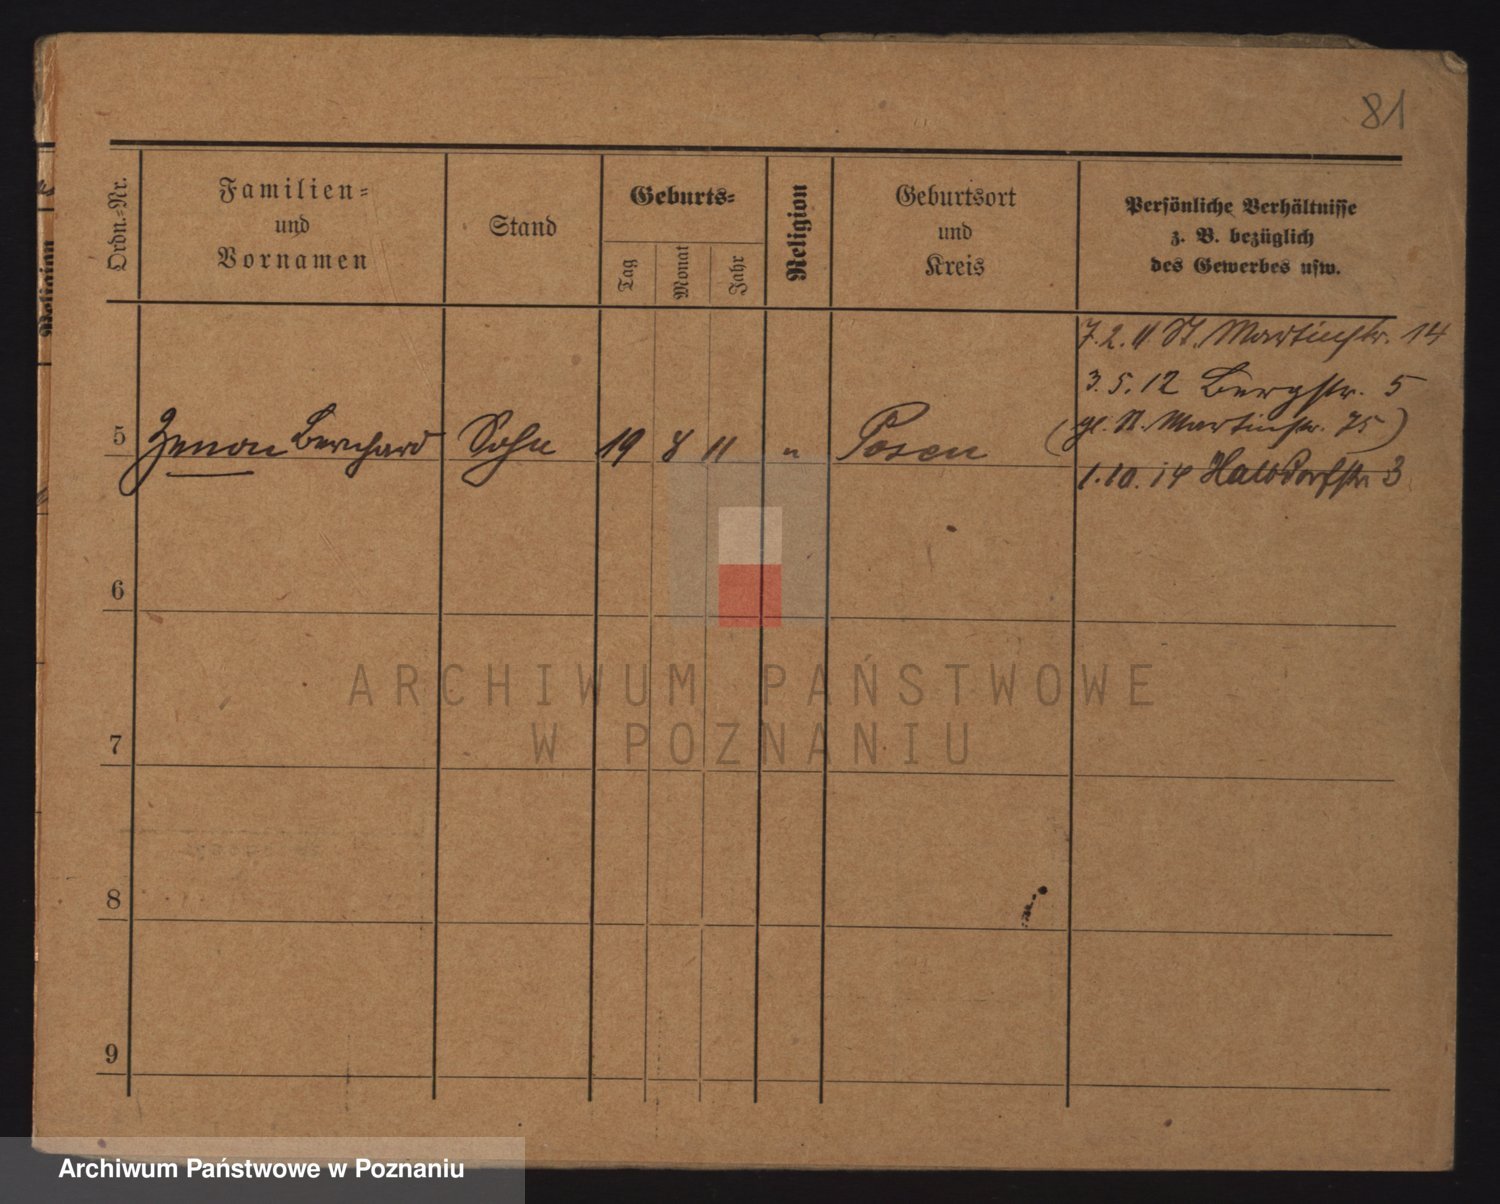 81
Ordn.-Nr.
Familien-
und
Vornamen
Stand
Geburts-
Tag
Monat
Jahr
Religion
Geburtsort
und
Kreis
Persönliche Verhältnisse
z. B. bezüglich
des Gewerbes usw.
Religion
7.2.11 St. Martinstr. 14
3.5.12 Bergstr. 5
(gl. St. Martinstr. 75)
5 Zenon Bernhard Sohn 19 8 11 " Posen
1.10.14 Halbdorfstr. 3
6
7
8
9
ARCHIWUM PAŃSTWOWE
W POZNANIU
Archiwum Państwowe w Poznaniu